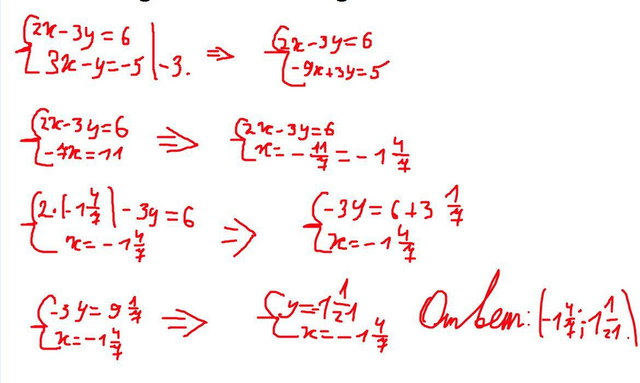 {2x-3y=6
{3x-y=-5 |-3. ⇒ {2x-3y=6
{-9x+3y=5
{2x-3y=6
{-7x=11 ⇒ {2x-3y=6
{x=-11/7=-1 4/7
{2·(-1 4/7)-3y=6
{x=-1 4/7 ⇒ {-3y=6+3 1/7
{x=-1 4/7
{-3y=9 1/7
{x=-1 4/7 ⇒ {y=-1 1/21
{x=-1 4/7
Ответ: (-1 4/7; 1 1/21)